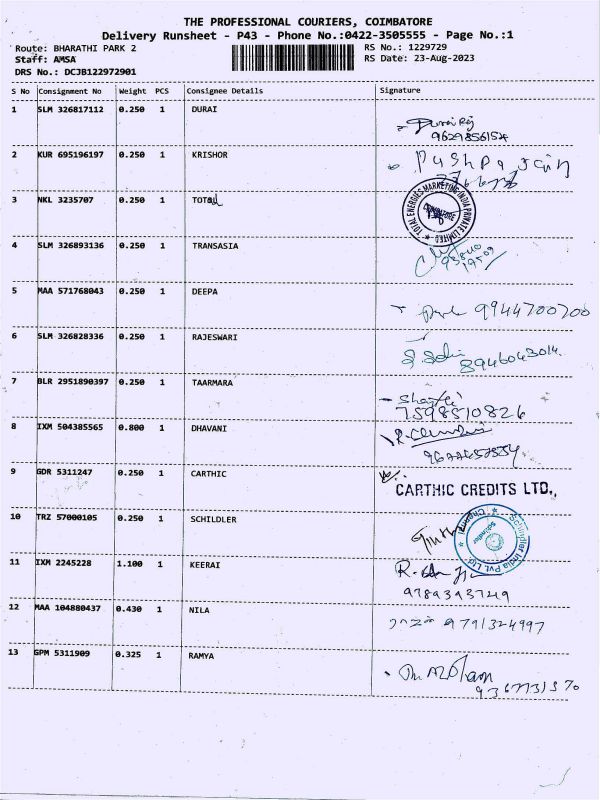 THE PROFESSIONAL COURIERS, COIMBATORE
Delivery Runsheet - P43 - Phone No.:0422-3505555 - Page No.:1
Route: BHARATHI PARK 2 RS No.: 1229729
Staff: AMSA RS Date: 23-Aug-2023
DRS No.: DCJB122972901
S No Consignment No Weight PCS Consignee Details Signature
1 SLM 326817112 0.250 1 DURAI
9629856154
2 KUR 695196197 0.250 1 KRISHOR
3 NKL 3235707 0.250 1 TOTAL
TOTAL ENERGIES MARKETING INDIA PRIVATE LIMITED
COIMBATORE
4 SLM 326893136 0.250 1 TRANSASIA
5 MAA 571768043 0.250 1 DEEPA
9944700700
6 SLM 326828336 0.250 1 RAJESWARI
8946043014
7 BLR 2951890397 0.250 1 TAARMARA
7598510826
8 IXM 504385565 0.800 1 DHAVANI
9 GDR 5311247 0.250 1 CARTHIC
CARTHIC CREDITS LTD.,
10 TRZ 57000105 0.250 1 SCHILDLER
Schindler India Pvt. Ltd. * Chennai *
Schindler
11 IXM 2245228 1.100 1 KEERAI
12 MAA 104880437 0.430 1 NILA
9791324997
13 GPM 5311909 0.325 1 RAMYA